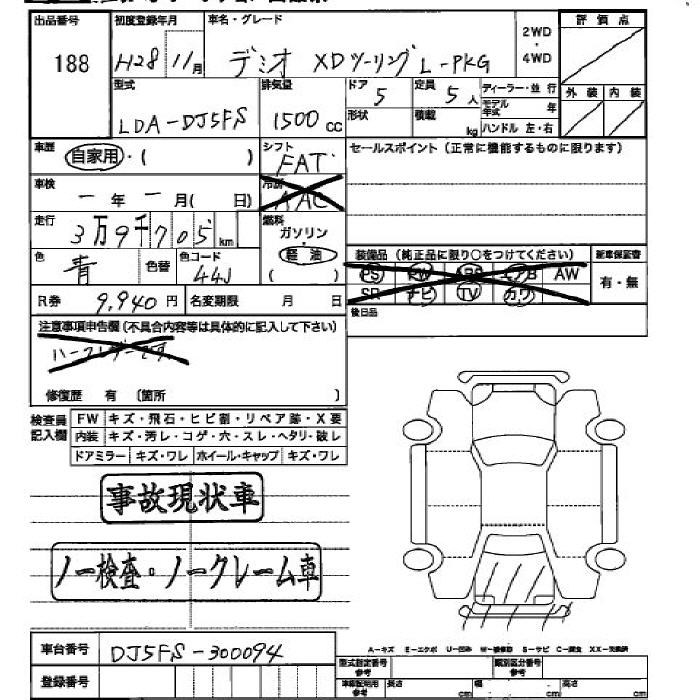 出品番号 初度登録年月 車名・グレード 2WD・4WD 評価点
188 H28 11月 デミオ XDツーリング L-PKG
型式 排気量 ドア 5 定員 5人 ディーラー・並行 外装 内装
LDA-DJ5FS 1500cc 形状 積載 kg モデル年式 年
ハンドル 左・右
車歴 自家用・( ) シフト FAT セールスポイント(正常に機能するものに限ります)
車検 一年一月( 日) 冷房 AAC
走行 3万9千705km 燃料 ガソリン
軽油
( )
装備品(純正品に限り○をつけてください) 新車保証書
色 青 色替 色コード 44J PS PW ABS エアB AW 有・無
R券 9,940円 名変期限 月 日 SR ナビ TV カワ
後日品
注意事項申告欄(不具合内容等は具体的に記入して下さい)
ハーフレザーです。
修復歴 有 〔箇所 〕
検査員記入欄 FW キズ・飛石・ヒビ割・リペア跡・X要
内装 キズ・汚レ・コゲ・穴・スレ・ヘタリ・破レ
ドアミラー キズ・ワレ ホイール・キャップ キズ・ワレ
事故現状車
ノー検査・ノークレーム車
A-キズ E-エクボ U-凹ミ W-補修跡 S-サビ C-腐食 XX-交換済
車台番号 DJ5FS-300094 型式指定番号 参考 類別区分番号 参考
登録番号 長さ cm 幅 cm 高さ cm